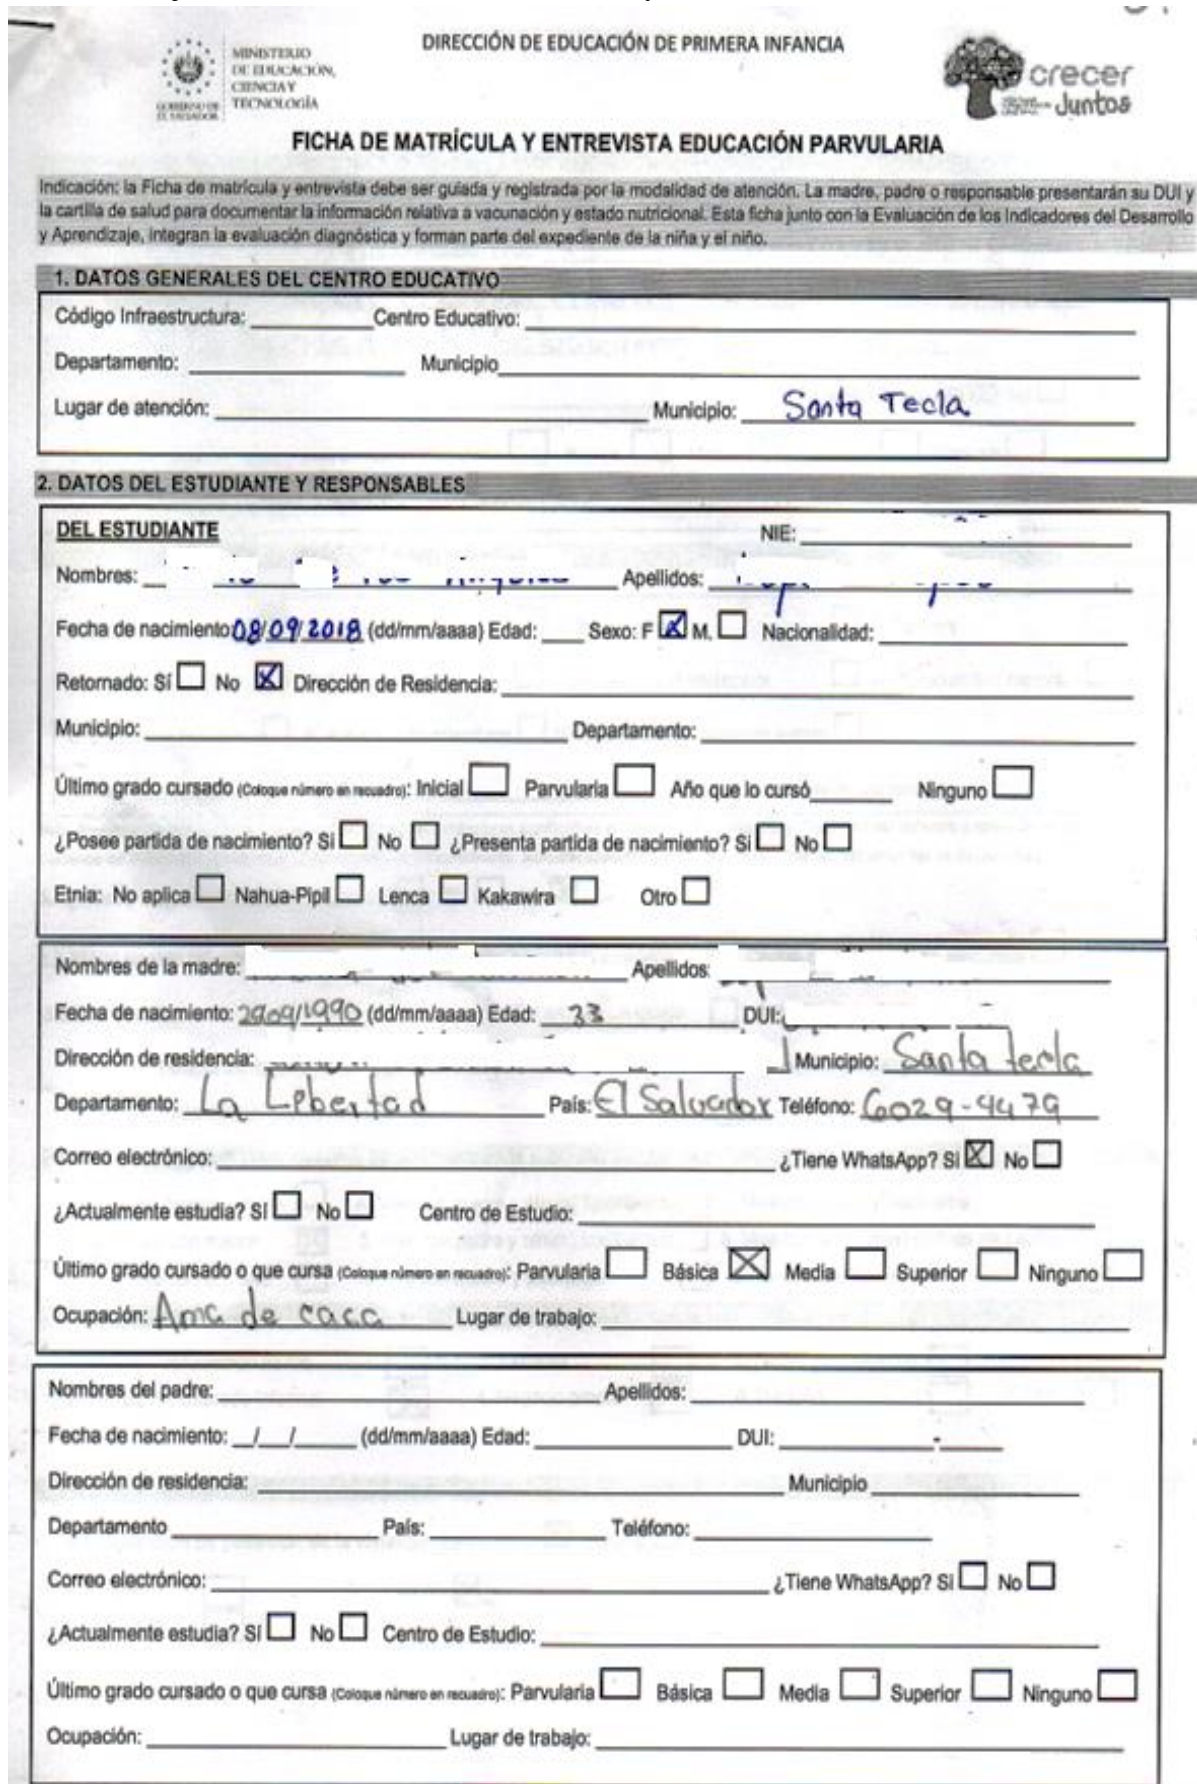 DIRECCIÓN DE EDUCACIÓN DE PRIMERA INFANCIA
MINISTERIO
DE EDUCACIÓN,
CIENCIA Y
TECNOLOGÍA
GOBIERNO DE
EL SALVADOR
crecer
Juntos
FICHA DE MATRÍCULA Y ENTREVISTA EDUCACIÓN PARVULARIA
Indicación: la Ficha de matrícula y entrevista debe ser guiada y registrada por la modalidad de atención. La madre, padre o responsable presentarán su DUI y
la cartilla de salud para documentar la información relativa a vacunación y estado nutricional. Esta ficha junto con la Evaluación de los Indicadores del Desarrollo
y Aprendizaje, integran la evaluación diagnóstica y forman parte del expediente de la niña y el niño.
1. DATOS GENERALES DEL CENTRO EDUCATIVO
Código Infraestructura: Centro Educativo:
Departamento: Municipio
Lugar de atención: Municipio: Santa Tecla
2. DATOS DEL ESTUDIANTE Y RESPONSABLES
DEL ESTUDIANTE NIE:
Nombres: Apellidos:
Fecha de nacimiento 08/09/2018 (dd/mm/aaaa) Edad: Sexo: F X M. Nacionalidad:
Retornado: Sí No X Dirección de Residencia:
Municipio: Departamento:
Último grado cursado (Coloque número en recuadro): Inicial Parvularia Año que lo cursó Ninguno
¿Posee partida de nacimiento? Si No ¿Presenta partida de nacimiento? Si No
Etnia: No aplica Nahua-Pipil Lenca Kakawira Otro
Nombres de la madre: Apellidos:
Fecha de nacimiento: 2909/1990 (dd/mm/aaaa) Edad: 33 DUI:
Dirección de residencia: Municipio: Santa tecla
Departamento: La Lebertad País: El Salvador Teléfono: 6029-4479
Correo electrónico: ¿Tiene WhatsApp? Si X No
¿Actualmente estudia? Sí No Centro de Estudio:
Último grado cursado o que cursa (Coloque número en recuadro): Parvularia Básica X Media Superior Ninguno
Ocupación: Ama de caca Lugar de trabajo:
Nombres del padre: Apellidos:
Fecha de nacimiento: __/__/____ (dd/mm/aaaa) Edad: DUI: -
Dirección de residencia: Municipio
Departamento País: Teléfono:
Correo electrónico: ¿Tiene WhatsApp? Si No
¿Actualmente estudia? Sí No Centro de Estudio:
Último grado cursado o que cursa (Coloque número en recuadro): Parvularia Básica Media Superior Ninguno
Ocupación: Lugar de trabajo: